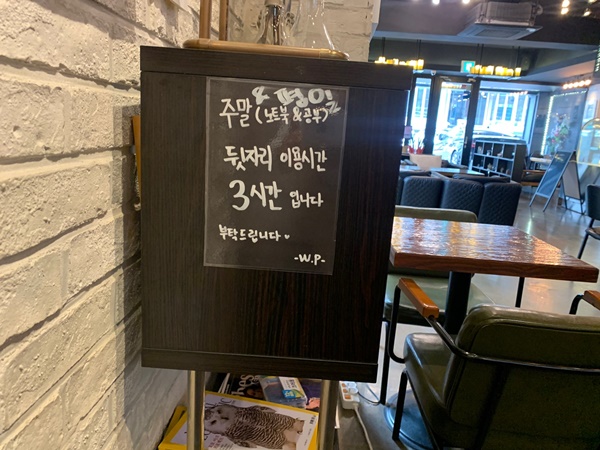 & 평일
주말 (노트북 & 공부)
뒷자리 이용시간
3시간 입니다
부탁드립니다 ♥
-W.P-